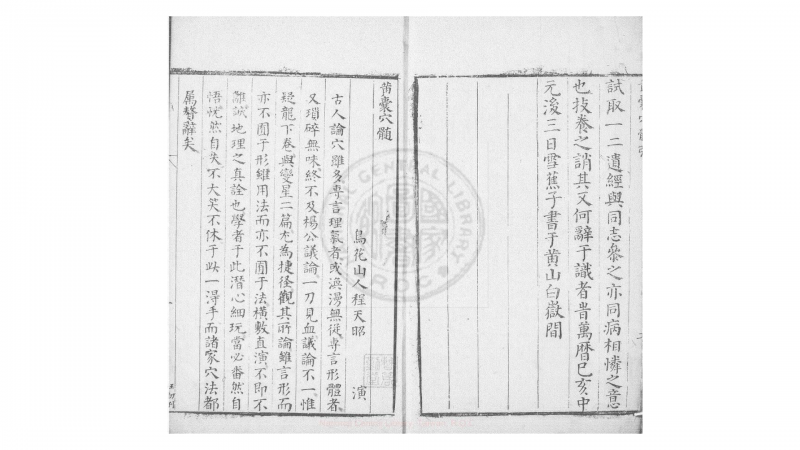 試取一二遺經與同志參之亦同病相憐之意
也技養之誚其又何辭于識者旹萬曆己亥中
元後三日雪蕉子書于黄山白嶽間
青囊穴髓
鳥花山人程天昭 演
古人論穴雖多專言理氣者或漁漫無從專言形體者
又瑣碎無味終不及楊公議論一刀見血議論不一惟
疑龍下卷與變星二篇尤為捷徑觀其所論雖言形而
亦不囿于形雖用法而亦不囿于法橫數直演不即不
離誠地理之真詮也學者于此潛心細玩當必番然自
悟恍然自失不大笑不休于此一得手而諸家穴法都
属贅辭矣